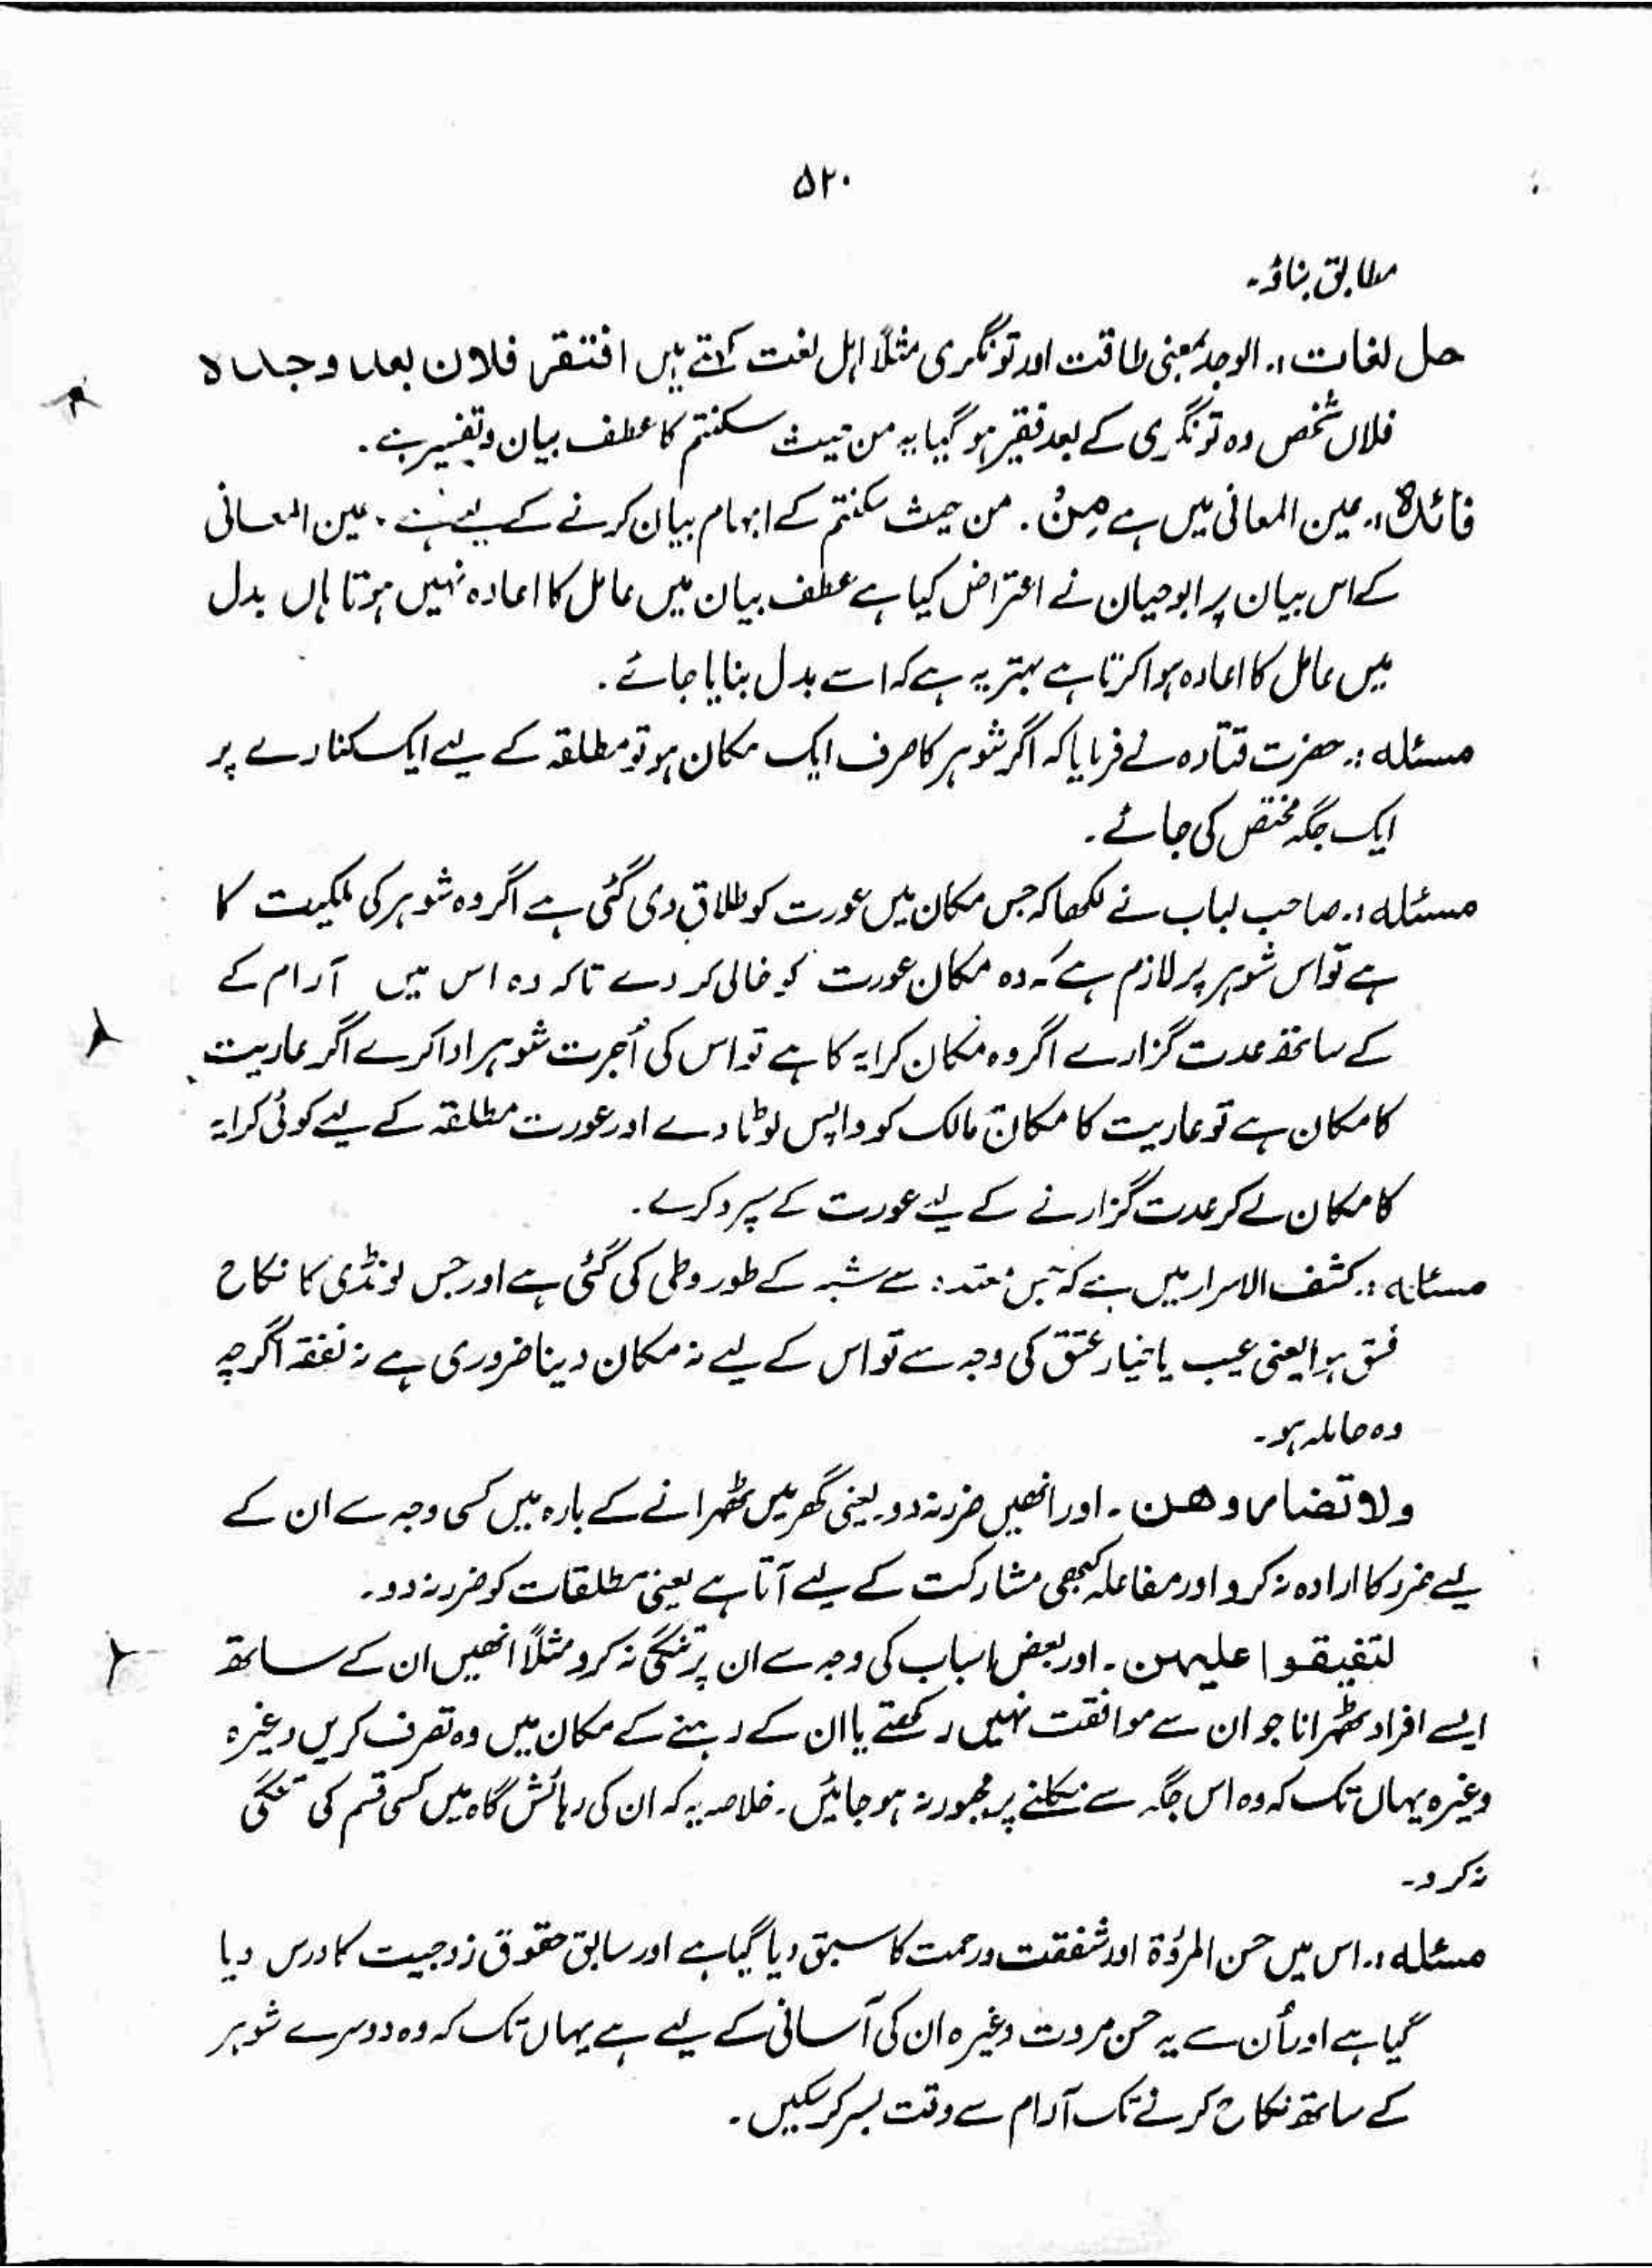 ۵۲۰
مطابق بناؤ۔
حل لغات :۔ الوجد بمعنی طاقت اور تونگری مثلاً اہل لغت کہتے ہیں افتقر فلان بعد وجدہ
فلاں شخص وہ تونگری کے بعد فقیر ہو گیا یہ من حیث سکنتم کا عطف بیان و تفسیر ہے۔
فائدہ :۔ عین المعانی میں ہے مِنْ۔ من حیث سکنتم کے ابہام بیان کرنے کے لیے ہے۔ عین المعانی
کے اس بیان پر ابوحیان نے اعتراض کیا ہے عطف بیان میں عامل کا اعادہ نہیں ہوتا ہاں بدل
میں عامل کا اعادہ ہوا کرتا ہے بہتر یہ ہے کہ اسے بدل بنایا جائے۔
مسئلہ :۔ حضرت قتادہ نے فرمایا کہ اگر شوہر کا صرف ایک مکان ہو تو مطلقہ کے لیے ایک کنارے پر
ایک جگہ مختص کی جائے۔
مسئلہ :۔ صاحب لباب نے لکھا کہ جس مکان میں عورت کو طلاق دی گئی ہے اگر وہ شوہر کی ملکیت کا
ہے تو اس شوہر پر لازم ہے کہ وہ مکان عورت کو خالی کر دے تاکہ وہ اس میں آرام کے
کے ساتھ عدت گزارے اگر وہ مکان کرایہ کا ہے تو اس کی اُجرت شوہر ادا کرے اگر عاریت
کا مکان ہے تو عاریت کا مکان مالک کو واپس لوٹا دے اور عورت مطلقہ کے لیے کوئی کرایہ
کا مکان لے کر عدت گزارنے کے لیے عورت کے سپرد کرے۔
مسئلہ :۔ کشف الاسرار میں ہے کہ جس معتدہ سے شبہ کے طور وطی کی گئی ہے اور جس لونڈی کا نکاح
فسق ہوا یعنی عیب یا خیار عتق کی وجہ سے تو اس کے لیے نہ مکان دینا ضروری ہے نہ نفقہ اگرچہ
وہ حاملہ ہو۔
ولا تضاروهن۔ اور انھیں ضرر نہ دو۔ یعنی گھر میں ٹھہرانے کے بارہ میں کسی وجہ سے ان کے
لیے ضرر کا ارادہ نہ کرو اور مفاعلہ کبھی مشارکت کے لیے آتا ہے یعنی مطلقات کو ضرر نہ دو۔
لتضیقوا علیہن۔ اور بعض اسباب کی وجہ سے ان پر تنگی نہ کرو مثلاً انھیں ان کے ساتھ
ایسے افراد ٹھہرانا جو ان سے موافقت نہیں رکھتے یا ان کے رہنے کے مکان میں وہ تصرف کریں وغیرہ
وغیرہ یہاں تک کہ وہ اس جگہ سے نکلنے پر مجبور نہ ہو جائیں۔ خلاصہ یہ کہ ان کی رہائش گاہ میں کسی قسم کی تنگی
نہ کرو۔
مسئلہ :۔ اس میں حسن المرؤة اور شفقت ورحمت کا سبق دیا گیا ہے اور سابق حقوق زوجیت کا درس دیا
گیا ہے اور اُن سے یہ حسن مروت وغیرہ ان کی آسانی کے لیے ہے یہاں تک کہ وہ دوسرے شوہر
کے ساتھ نکاح کرنے تک آرام سے وقت بسر کر سکیں۔